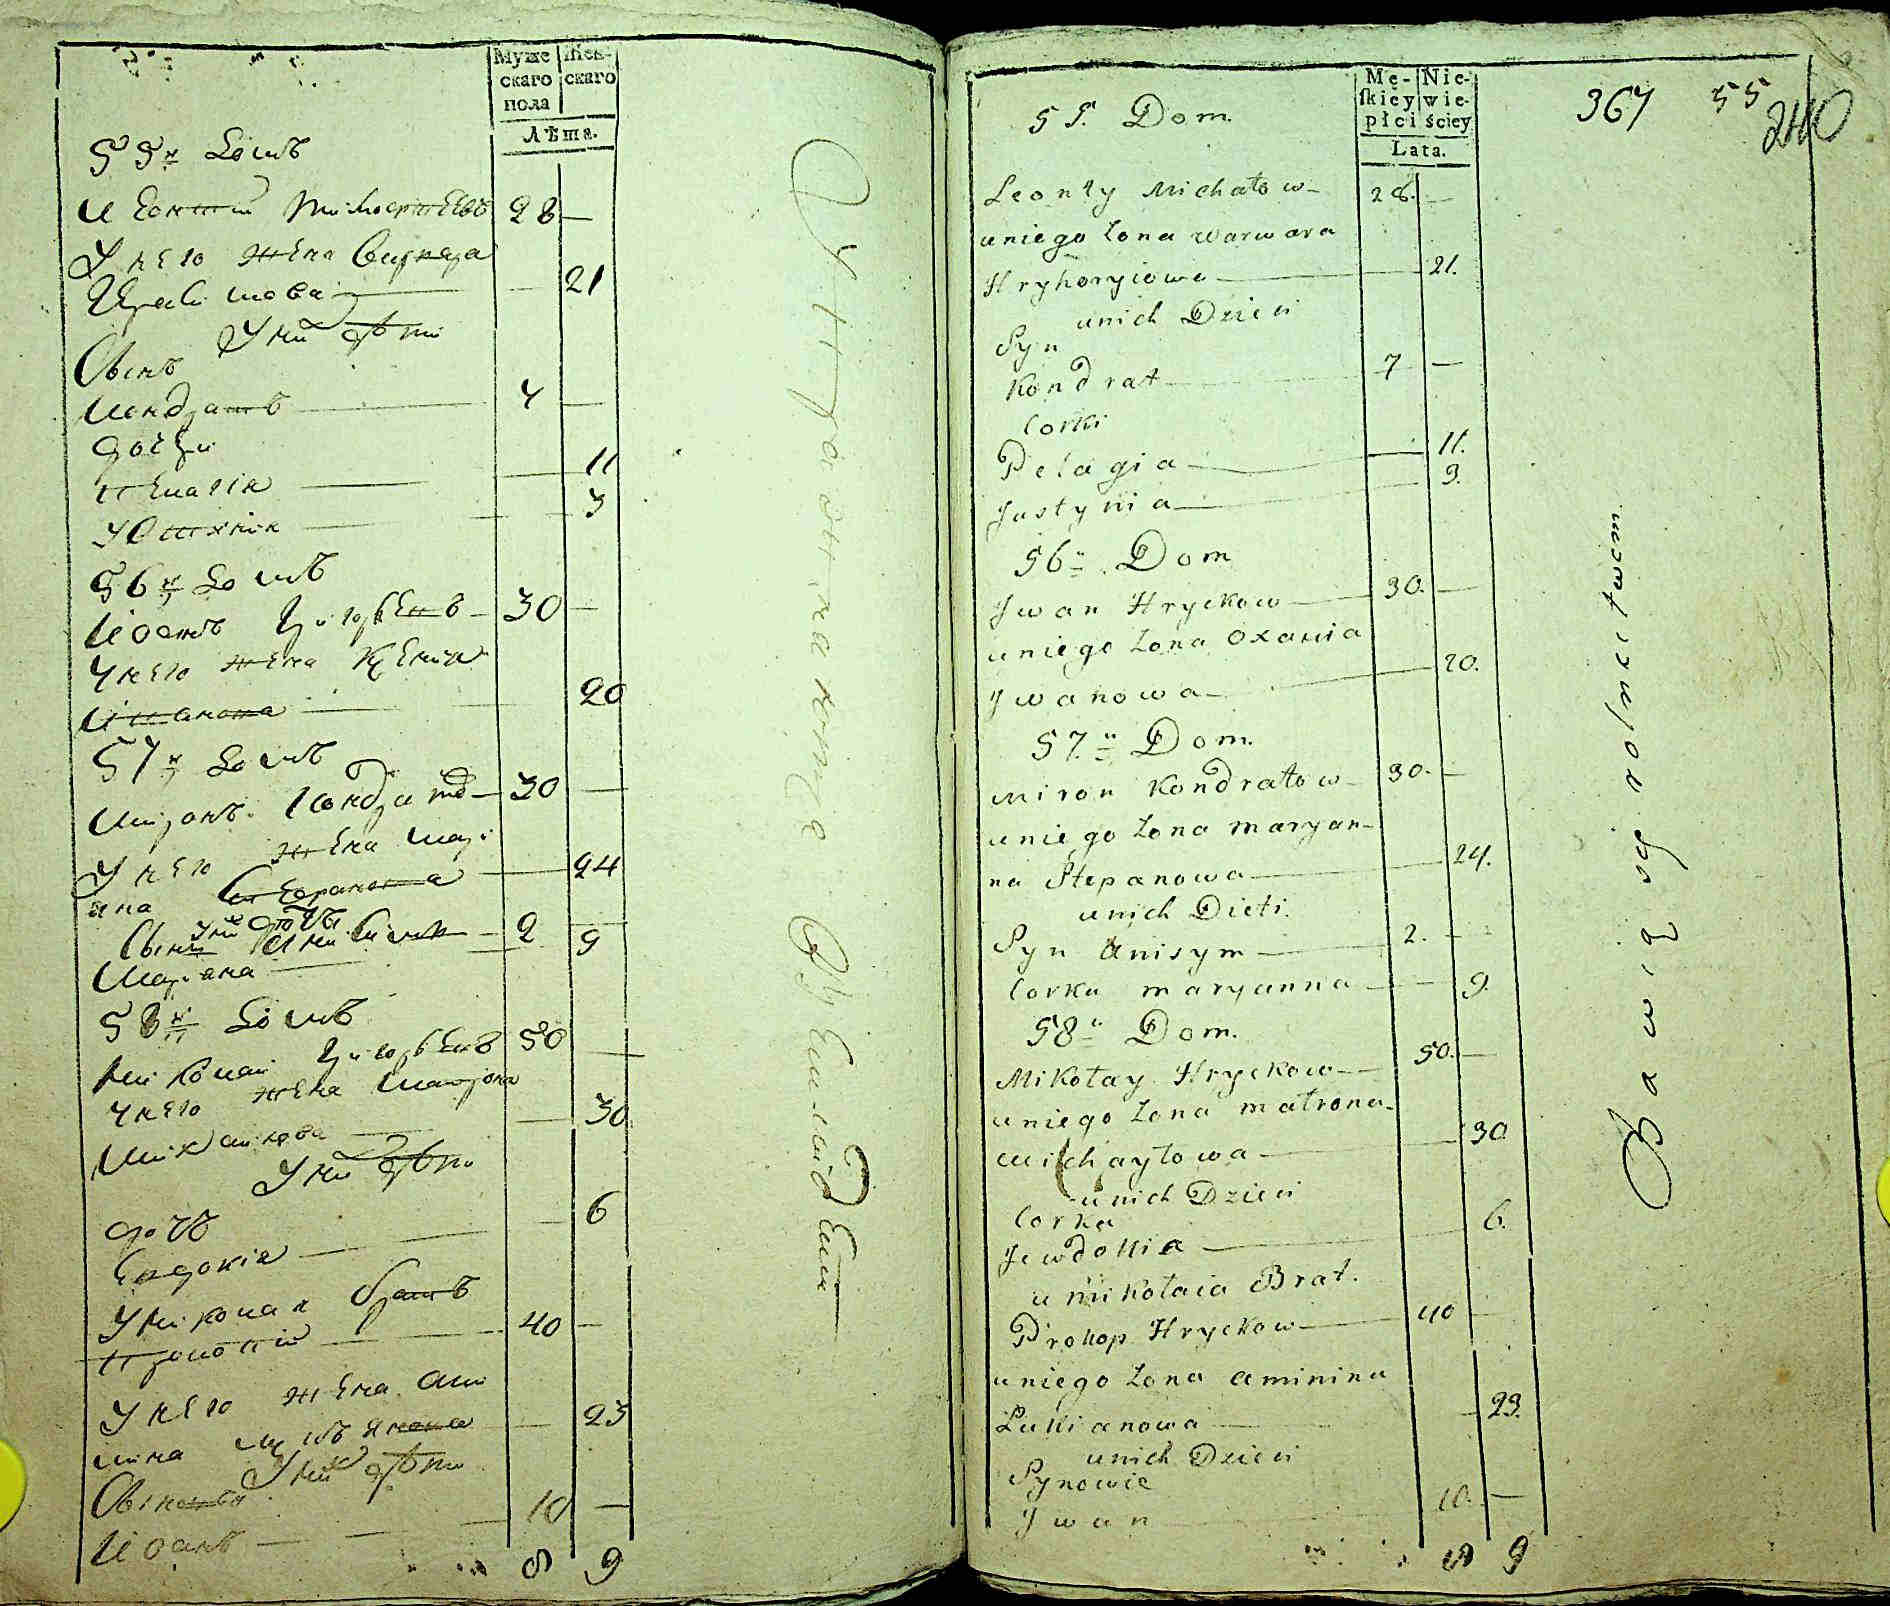 Муже
скаго
пола
Жен-
скаго
Лѣта.
55й Домъ
Леонтій 28 —
У него жена Варвара
21
У ни дѣти
Сынъ
Кондратъ 7 —
дочери
Пелагія 11
Юстинія 3
56й Домъ
Иоанъ Григорьевъ 30 —
У него жена Ксенія
Иванова 20
57й Домъ
Миронъ Кондратов 30 —
У него жена Мари
яна Степанова 24
У ни дѣти
Сынъ Анисим 2
Мариана 9
58й Домъ
Николай Григорьевъ 50 —
У него жена Матрона
Михайлова 30
У ни дѣти
дочь 6
Евдокія
У Николая братъ
Прокопій 40 —
У него жена Ами
нина Лукьянова 23
У них дѣти
Сыновья
Иоанъ 10 —
8 9
Упражняются
Mę-
skiey
płci
Nie-
wie-
ściey
Lata.
367 55
240
55. Dom.
Leonty Michałow 28. —
uniego żona warwara
Hryhoryiowa 21.
unich Dzieci
Syn
Kondrat 7 —
Corki
Pelagia 11.
Justynia 3.
56й Dom
Jwan Hryckow 30. —
uniego żona Oxania
Jwanowa 20.
57.й Dom.
Miron Kondratow 30. —
uniego żona maryan-
na Stepanowa 24.
unich Dieti.
Syn Anisym 2. —
Corka maryanna 9.
58й Dom.
Mikołay Hryckow 50. —
uniego żona matrona
Michayłowa 30
unich Dzieci
Corka
Jewdokia 6.
u Mikołaia Brat.
Prokop Hryckow 40 —
uniego żona aminina
Lukianowa 23.
unich Dzieci
Synowie
Jwan 10. —
8 9
Bawią się rolnictwem